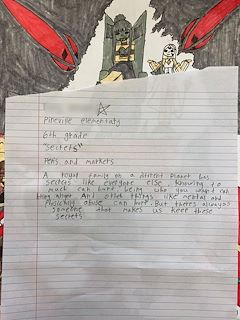 Pineville elementaty
6th grade
"secrets"
Pens and markets
A royal family on a diffrent planet has
secrets like everyone else, knowing to
much can hurt being who you want can
bring anger And other things like mental and
Phsichly abuse can hurt. But theres always
someone that makes us keep these
secrets